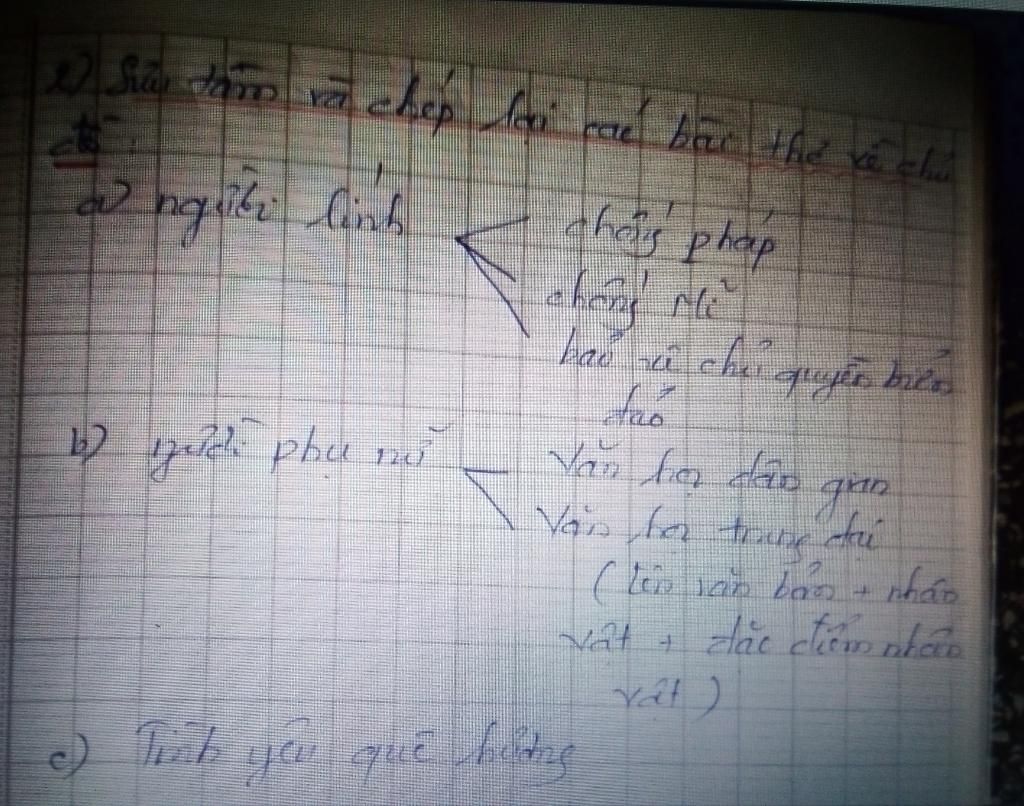 2) Sưu tầm và chép lại các bài thơ về chủ
đề:
a) người lính
chống pháp
chống Mĩ
bảo vệ chủ quyền biển
đảo
b) người phụ nữ
Văn học dân gian
Văn học trung đại
(tên văn bản + nhân
vật + đặc điểm nhân
vật)
c) Tình yêu quê hương